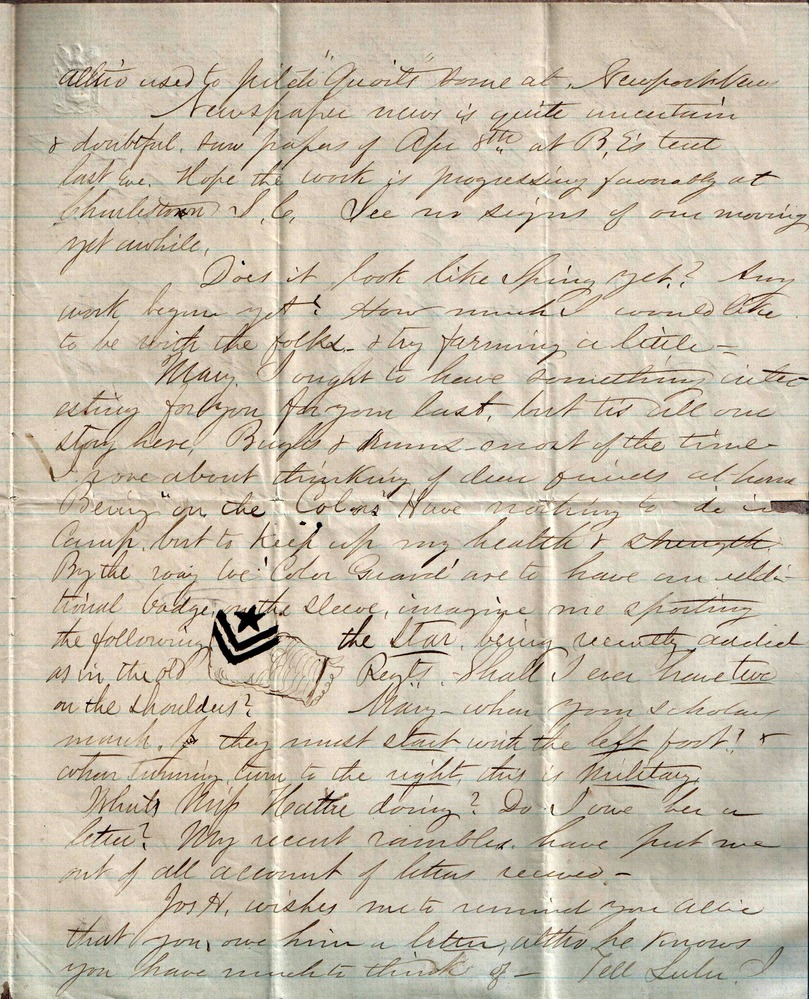 used to pitch "Quoits" some at Newport News
Newspaper news is quite uncertain
& doubtful. Saw papers of Apr 8th at B, E's tent
last eve. Hope the work is progressing favorably at
Charlestown S, C, See no signs of our moving
yet awhile.
Does it look like Spring yet? Any
work begun yet? How much I would like
to be with the folks - & try farming a little -
Mary I ought to have something inter
esting for you for your last, but tis all one
story here, Bugles & drums - most of the time -
I rove about thinking of dear friends at home
Being "on the Colors" Have nothing to do in
Camp. but to keep up my health & strength.
By the way we 'Color Guard' are to have an addi-
tional badge, on the sleeve, imagine me sporting
the following the star being recently added
as in the old Regts. - Shall I ever have two
on the shoulders? Mary - when your scholars
march, they must start with the left foot! &
when turning, turn to the right, this is Military.
What's Miss Hattie doing? Do I owe her a
letter? My recent rambles have put me
out of all account of letters received -
Jos H. wishes me to remind you Allie
that you, owe him a letter, altho he knows
you have much to think of - Tell Lulu I